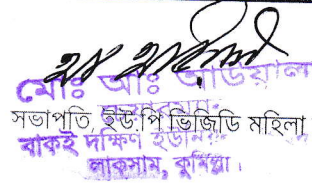 মোঃ আঃ আউয়াল
সভাপতি, ইউ.পি ভিজিডি মহিলা
বাকই দক্ষিণ ইউনি
লাকসাম, কুমিল্লা।